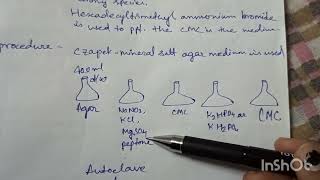 species.
Hexadecyltrimethyl ammonium bromide
is used to ppt. the CMC in the medium
procedure - Czapek-mineral salt agar medium is used
400ml
d/w
Agar
NaNO3,
KCl,
MgSO4
peptone
CMC
K2HPO4 or
KH2PO4
CMC
Autoclave
InShOt